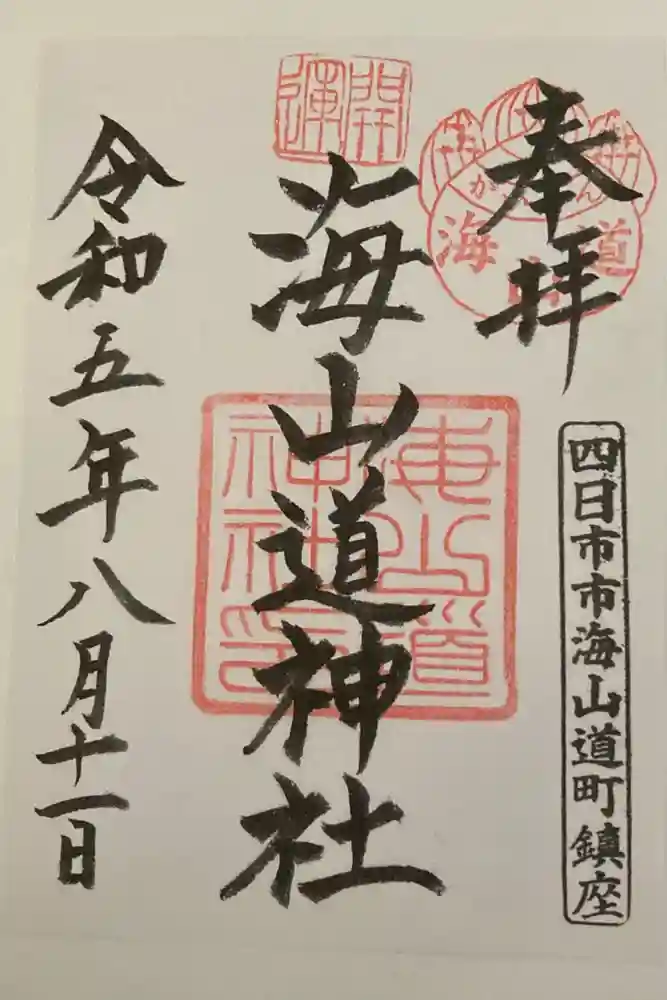 奉拝
四日市市海山道町鎮座
開運
海山道神社
海山道神社印
海 道
令和五年八月十一日